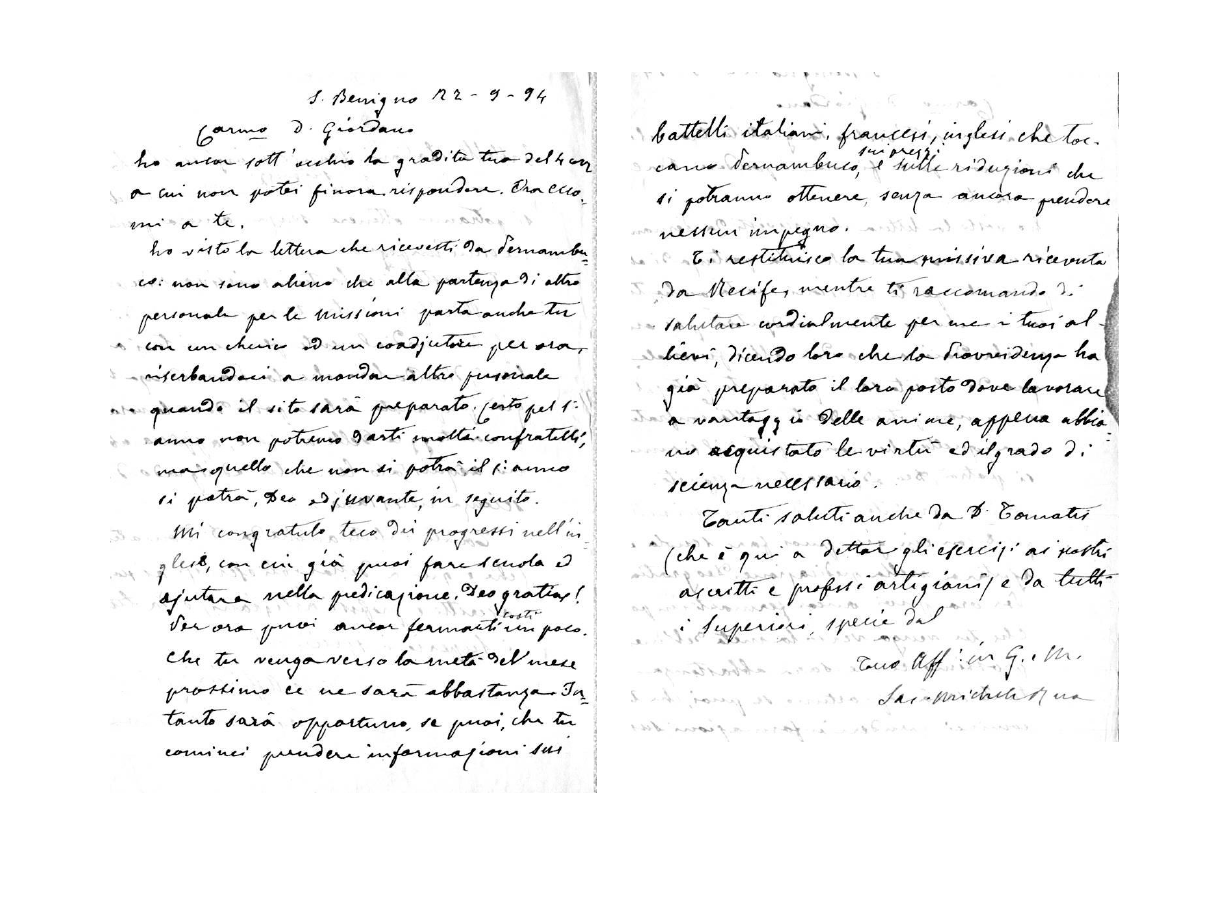 S. Benigno 22-9-94
Carmo D. Giordano
ho ancor sott'occhio la gradita tua del 4 corr
a cui non potei finora rispondere. Ora ecco-
mi a te.
ho visto la lettera che ricevesti da Pernambu-
co: non sono alieno che alla partenza di altro
personale per le missioni parta anche tu
con un cherico ed un coadjutore per ora,
riserbandoci a mandar altro personale
quando il sito sarà preparato. Certo pel 1°
anno non potremo darti molti confratelli,
ma quello che non si potrà il 1° anno
si potrà, Deo adjuvante, in seguito.
Mi congratulo teco dei progressi nell'in-
glese, con cui già puoi fare scuola ed
ajutare nella predicazione. Deo gratias!
Per ora puoi ancor fermarti costì un poco.
Che tu venga verso la metà del mese
prossimo ce ne sarà abbastanza. In-
tanto sarà opportuno, se puoi, che tu
cominci prendere informazioni sui
battelli italiani, francesi, inglesi che toc-
cano Pernambuco, sui prezzi e sulle riduzioni che
si potranno ottenere, senza ancora prendere
nessun impegno.
Ti restituisco la tua missiva ricevuta
da Recife, mentre ti raccomando di
salutare cordialmente per me i tuoi al-
lievi, dicendo loro che la Provvidenza ha
già preparato il loro posto dove lavorare
a vantaggio delle anime, appena abbia-
no acquistato le virtù ed il grado di
scienza necessario.
Tanti saluti anche da D. Tomatis
(che è qui a dettar gli esercizi ai nostri
ascritti e professi artigiani) e da tutti
i Superiori, specie dal
Tuo Aff.° in G. e M.
Sac. Michele Rua